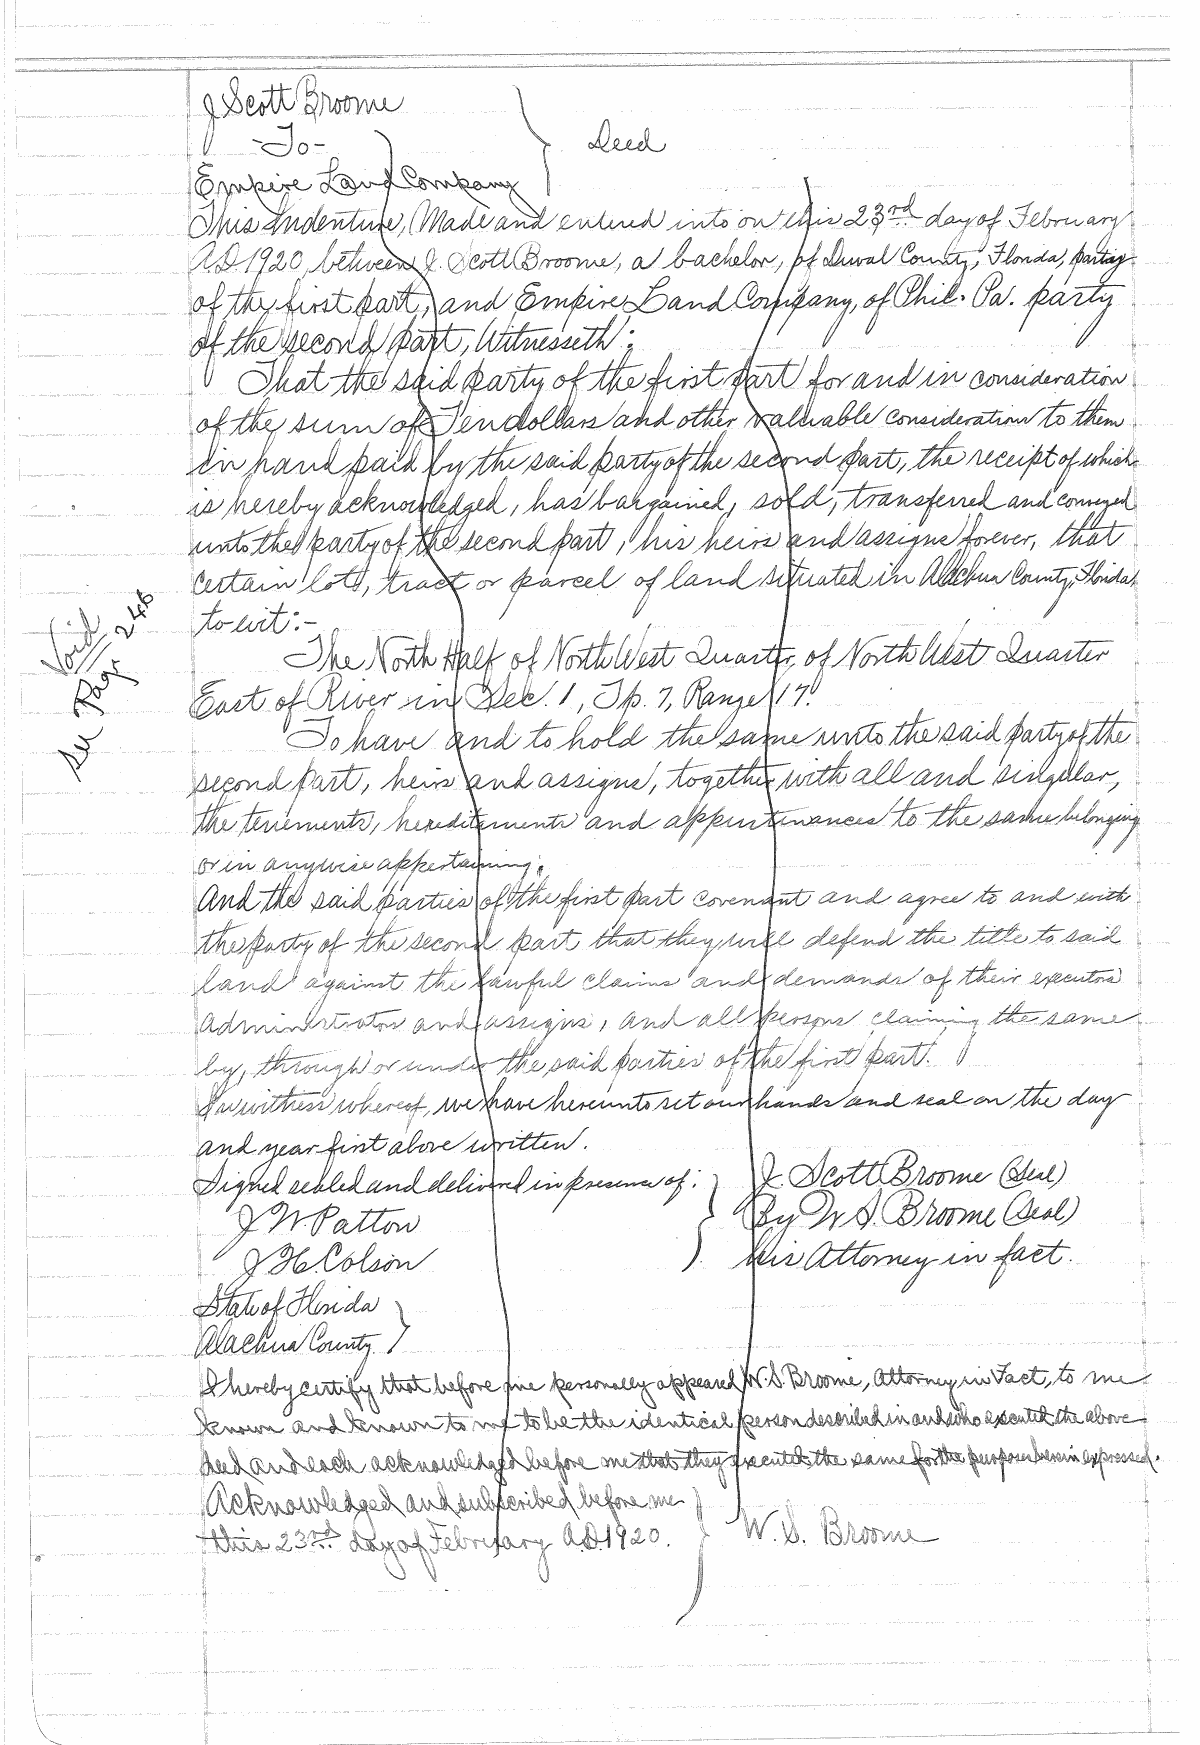 J Scott Broome
-To-
Deed
Empire Land Company
This Indenture, Made and entered into on this 23rd day of February
A.D. 1920, between J. Scott Broome, a bachelor, of Duval County, Florida,
of the first part, and Empire Land Company, of Phil. Pa. party
of the second part, Witnesseth:
That the said party of the first part for and in consideration
of the sum of Ten dollars and other valuable consideration to them
in hand paid by the said party of the second part, the receipt of which
is hereby acknowledged, has bargained, sold, transferred and conveyed
unto the party of the second part, his heirs and assigns forever, that
certain lot, tract or parcel of land situated in Alachua County, Florida
to wit:-
Void
See Page 246
The North Half of North West Quarter, of North West Quarter
East of River in Sec. 1, Tp. 7, Range 17.
To have and to hold the same unto the said party of the
second part, heirs and assigns, together with all and singular,
the tenements, hereditements and appurtenances to the same belonging
or in anywise appertaining.
And the said parties of the first part covenant and agree to and with
the party of the second part that they will defend the title to said
land against the lawful claims and demands of their executors
administrators and assigns, and all persons claiming the same
by, through or under the said parties of the first part.
In witness whereof, we have hereunto set our hands and seal on the day
and year first above written.
Signed sealed and delivered in presence of: J. Scott Broome (Seal)
J W Patton By W S. Broome (Seal)
J H Colson his Attorney in fact.
State of Florida
Alachua County
I hereby certify that before me personally appeared W. S. Broome, Attorney in Fact, to me
known and known to me to be the identical person described in and who executed the above
deed and each acknowledged before me that they executed the same for the purposes herein expressed.
Acknowledged and subscribed before me
this 23rd day of February A.D. 1920. W. S. Broome